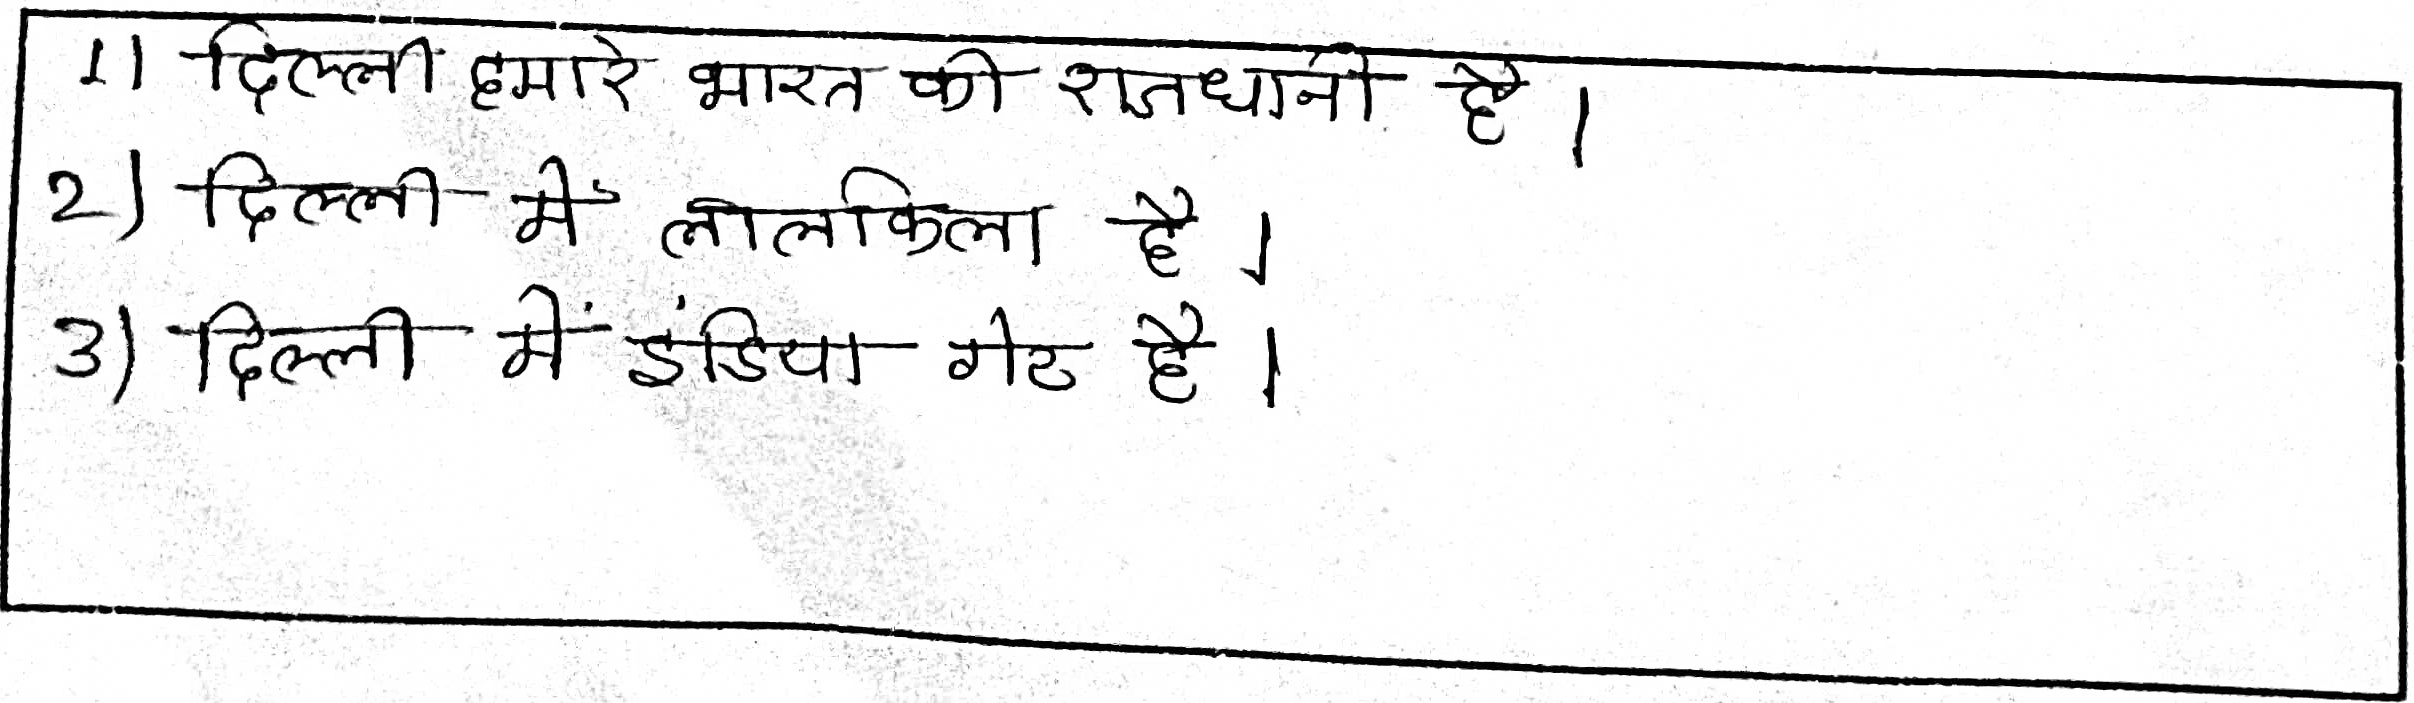 1) दिल्ली हमारे भारत की राजधानी है।
2) दिल्ली में लालकिला है।
3) दिल्ली में इंडिया गेट है।